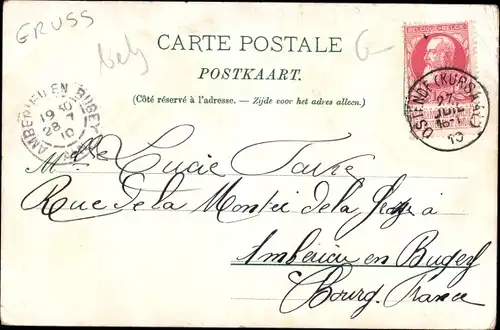 GRUSS
belg
G
CARTE POSTALE
POSTKAART.
(Côté réservé à l'adresse. — Zijde voor het adres alleen.)
BELGIQUE-BELGIË
OSTENDE (KURSAAL)
27
JUIL
10
AMBERIEU EN BUGEY
19 30
28 - 7
10
AIN
Mlle Lucie Favre
Rue de la Montée de la Gare à
Ambérieu en Bugey
Bourg. France